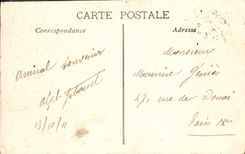 CARTE POSTALE
Correspondance
Adresse
Amical souvenir
13/10/11
Monsieur
Maurice
47, rue de Douai
Paris IXe